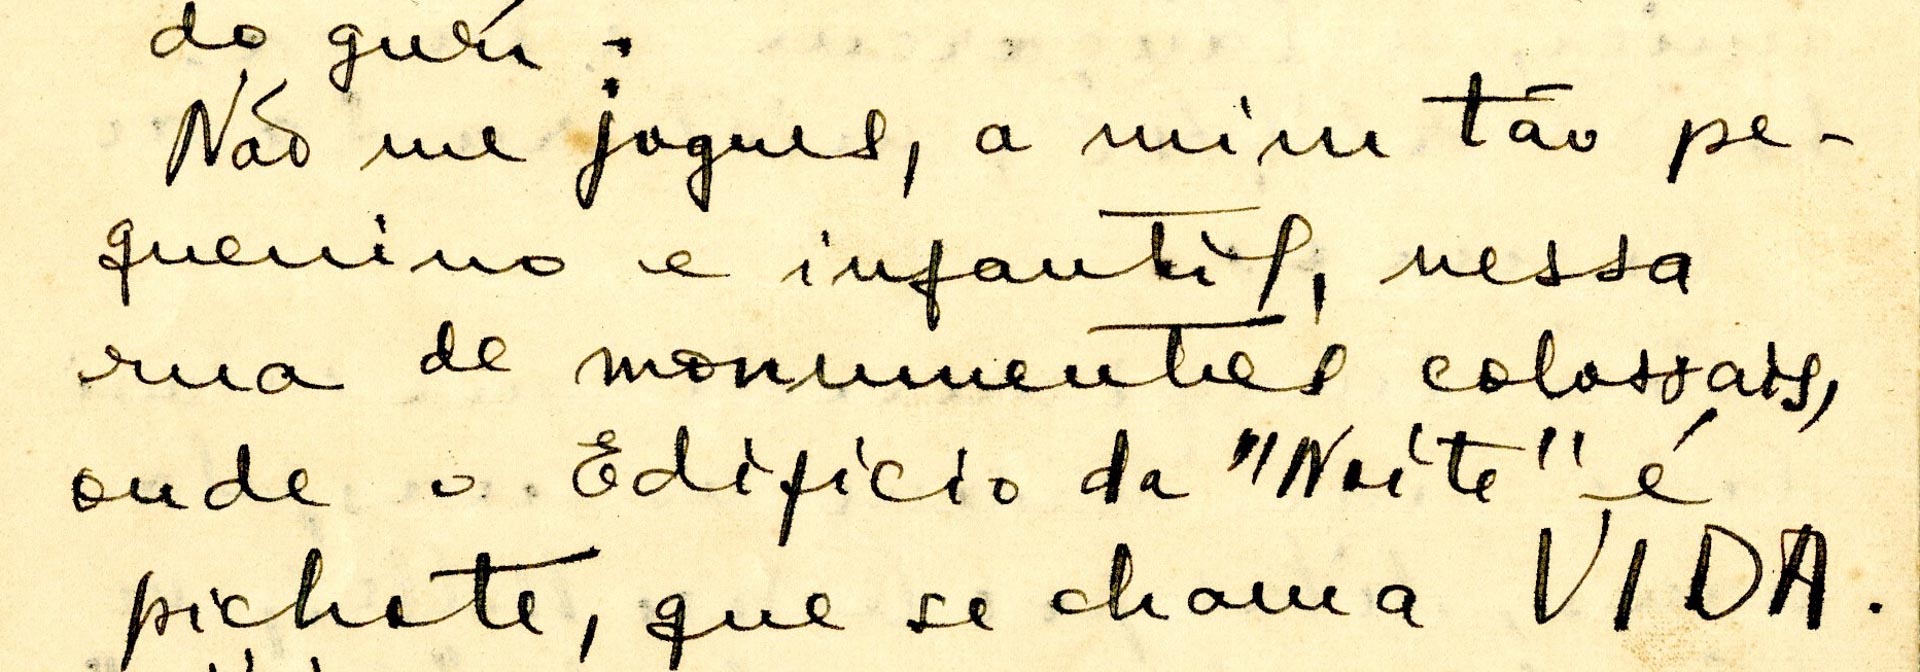 do guri:
Não me jogues, a mim tão pe-
quenino e infantil, nessa
rua de monumentos colossais,
onde o Edificio da "Noite" é
pichote, que se chama VIDA.